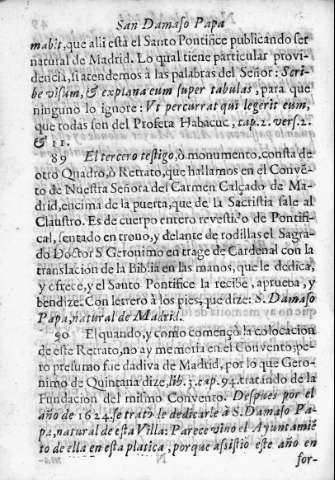 San Damaso Papa
mabit, que alli està el Santo Pontifice publicando ser
natural de Madrid. Lo qual tiene particular provi-
dencia, si atendemos a las palabras del Señor: Scri-
be visum, & explana eum super tabulas, para que
ninguno lo ignore: Ut percurrat qui legerit eum,
que todas son del Profeta Habacuc, cap. 2. vers. 2.
& 11.
89 El tercero testigo, ò monumento, consta de
otro Quadro, ò Retrato, que hallamos en el Convẽ-
to de Nuestra Señora del Carmen Calçado de Ma-
drid, encima de la puerta, que de la Sacristia sale al
Claustro. Es de cuerpo entero revestido de Pontifi-
cal, sentado en trono, y delante de rodillas el Sagra-
do Doctor S Geronimo en trage de Cardenal con la
translacion de la Biblia en las manos, que le dedica,
y ofrece, y el Santo Pontifice la recibe, aprueva, y
bendize. Con letrero à los pies, que dize: S. Damaso
Papa, natural de Madrid.
90 El quando, y como començò la colocacion
de este Retrato, no ay memoria en el Convento; pe-
ro presumo fue dadiva de Madrid, por lo que Gero-
nimo de Quintana dize, lib. 3. cap. 94. tratando de la
Fundacion del mismo Convento. Despues por el
año de 1624. se tratò le dedicarle à S. Damaso Pa-
pa, natural de esta Villa: Parece vino el Ayuntamiẽ-
to de ella en esta platica, porque assistio este año en
for-